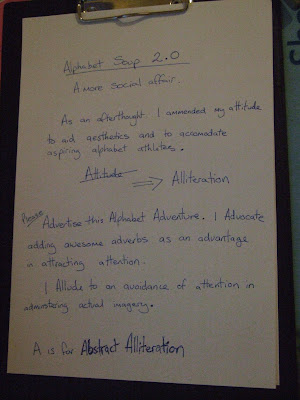 Alphabet Soup 2.0
A more social affair.
As an afterthought. I ammended my attitude
to aid aesthetics and to acromodate
aspiring alphabet athletes.
Attitude
⇒ Alliteration
Please Advertise this Alphabet Adventure. I Advocate
adding awesome adverbs as an advantage
in attracting attention.
I Allude to an avoidance of attention in
administering actual imagery.
A is for Abstract Alliteration